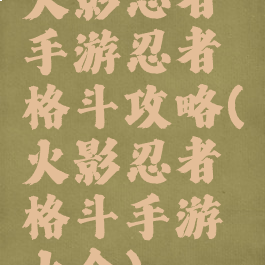 火影忍者
手游忍者
格斗攻略(
火影忍者
格斗手游
大全)